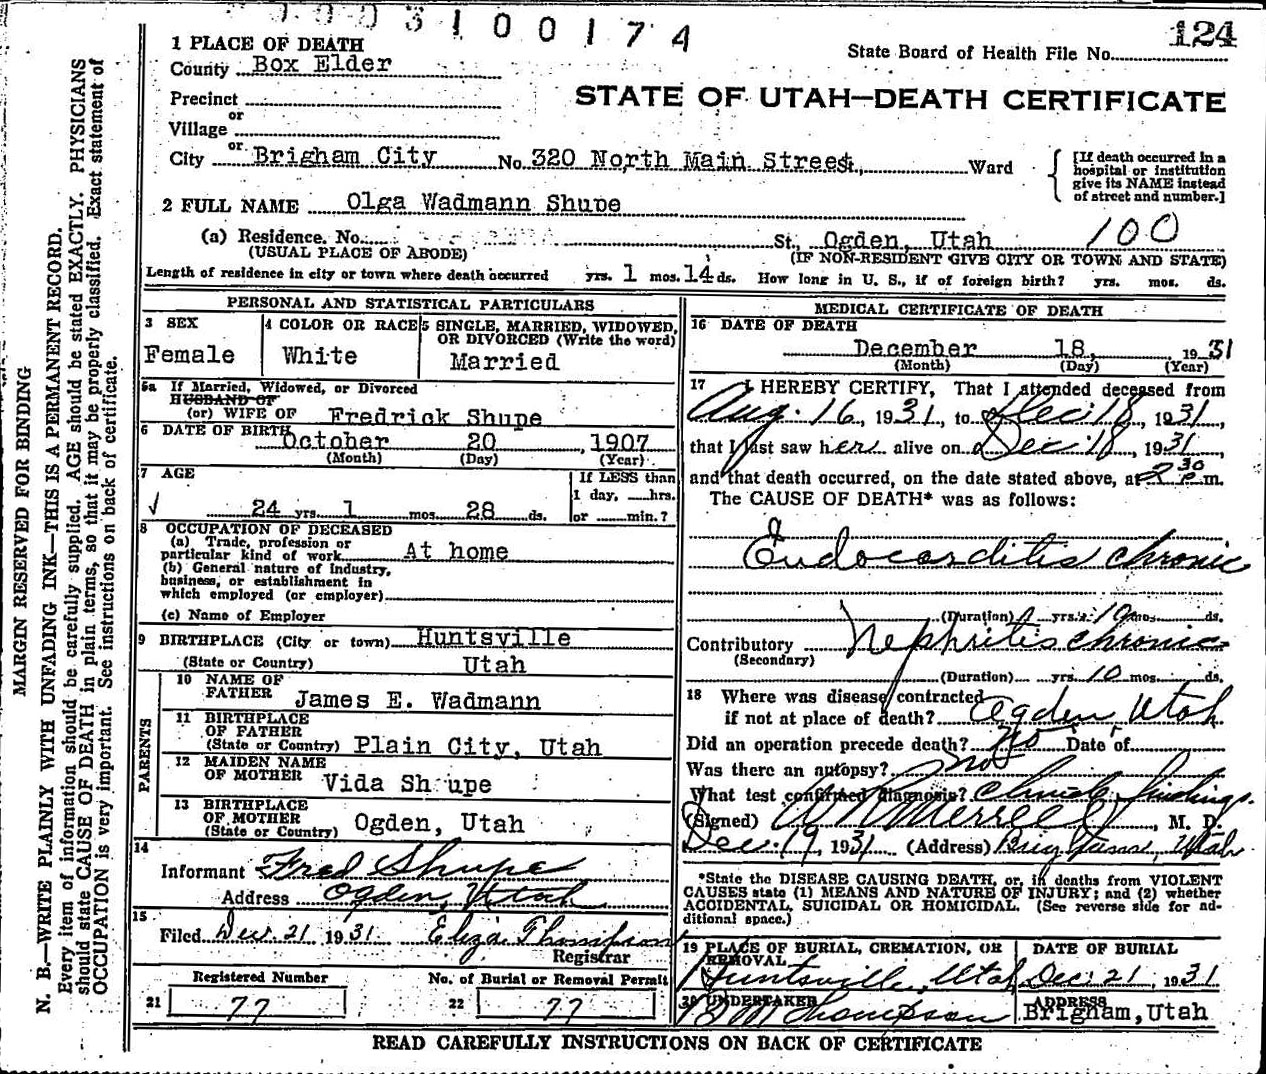 3 1 0 0 1 7 4
124
State Board of Health File No.
1 PLACE OF DEATH
County Box Elder
STATE OF UTAH—DEATH CERTIFICATE
Precinct
or
Village
or
City Brigham City No. 320 North Main Street, Ward
[If death occurred in a hospital or institution give its NAME instead of street and number.]
2 FULL NAME Olga Wadmann Shupe
(a) Residence. No. St., Ogden, Utah 100
(USUAL PLACE OF ABODE) (IF NON-RESIDENT GIVE CITY OR TOWN AND STATE)
Length of residence in city or town where death occurred yrs. 1 mos. 14 ds. How long in U. S., if of foreign birth? yrs. mos. ds.
PERSONAL AND STATISTICAL PARTICULARS
3 SEX
Female
4 COLOR OR RACE
White
5 SINGLE, MARRIED, WIDOWED, OR DIVORCED (Write the word)
Married
5a If Married, Widowed, or Divorced
HUSBAND OF
(or) WIFE OF Fredrick Shupe
6 DATE OF BIRTH October 20 1907
(Month) (Day) (Year)
7 AGE
24 yrs. 1 mos. 28 ds.
If LESS than
1 day, hrs.
or min.?
8 OCCUPATION OF DECEASED
(a) Trade, profession or
particular kind of work At home
(b) General nature of industry,
business, or establishment in
which employed (or employer)
(c) Name of Employer
9 BIRTHPLACE (City or town) Huntsville
(State or Country) Utah
PARENTS
10 NAME OF
FATHER James E. Wadmann
11 BIRTHPLACE
OF FATHER
(State or Country) Plain City, Utah
12 MAIDEN NAME
OF MOTHER Vida Shupe
13 BIRTHPLACE
OF MOTHER
(State or Country) Ogden, Utah
14
Informant Fred Shupe
Address Ogden, Utah
15
Filed Dec. 21 1931 Eliza Thompson
Registrar
Registered Number
21 77
No. of Burial or Removal Permit
22 77
MEDICAL CERTIFICATE OF DEATH
16 DATE OF DEATH
December 18, 1931
(Month) (Day) (Year)
17 I HEREBY CERTIFY, That I attended deceased from
Aug. 16, 1931, to Dec. 18, 1931,
that I last saw her alive on Dec. 18, 1931,
and that death occurred, on the date stated above, at 2 30 P. m.
The CAUSE OF DEATH* was as follows:
Endocarditis chronic
(Duration) yrs. 10 mos. ds.
Contributory Nephritis chronic
(Secondary)
(Duration) yrs. 10 mos. ds.
18 Where was disease contracted
if not at place of death? Ogden, Utah
Did an operation precede death? no Date of
Was there an autopsy? no
What test confirmed diagnosis? Clinical findings.
(Signed) Merrell, M. D.
Dec. 19, 1931 (Address) Brigham, Utah
*State the DISEASE CAUSING DEATH, or, in deaths from VIOLENT
CAUSES state (1) MEANS AND NATURE OF INJURY; and (2) whether
ACCIDENTAL, SUICIDAL OR HOMICIDAL. (See reverse side for additional space.)
19 PLACE OF BURIAL, CREMATION, OR REMOVAL
Huntsville, Utah
DATE OF BURIAL
Dec. 21, 1931
20 UNDERTAKER
Thompson
ADDRESS
Brigham, Utah
READ CAREFULLY INSTRUCTIONS ON BACK OF CERTIFICATE
MARGIN RESERVED FOR BINDING
N. B.—WRITE PLAINLY WITH UNFADING INK—THIS IS A PERMANENT RECORD.
Every item of information should be carefully supplied. AGE should be stated EXACTLY. PHYSICIANS
should state CAUSE OF DEATH in plain terms, so that it may be properly classified. Exact statement of
OCCUPATION is very important. See instructions on back of certificate.